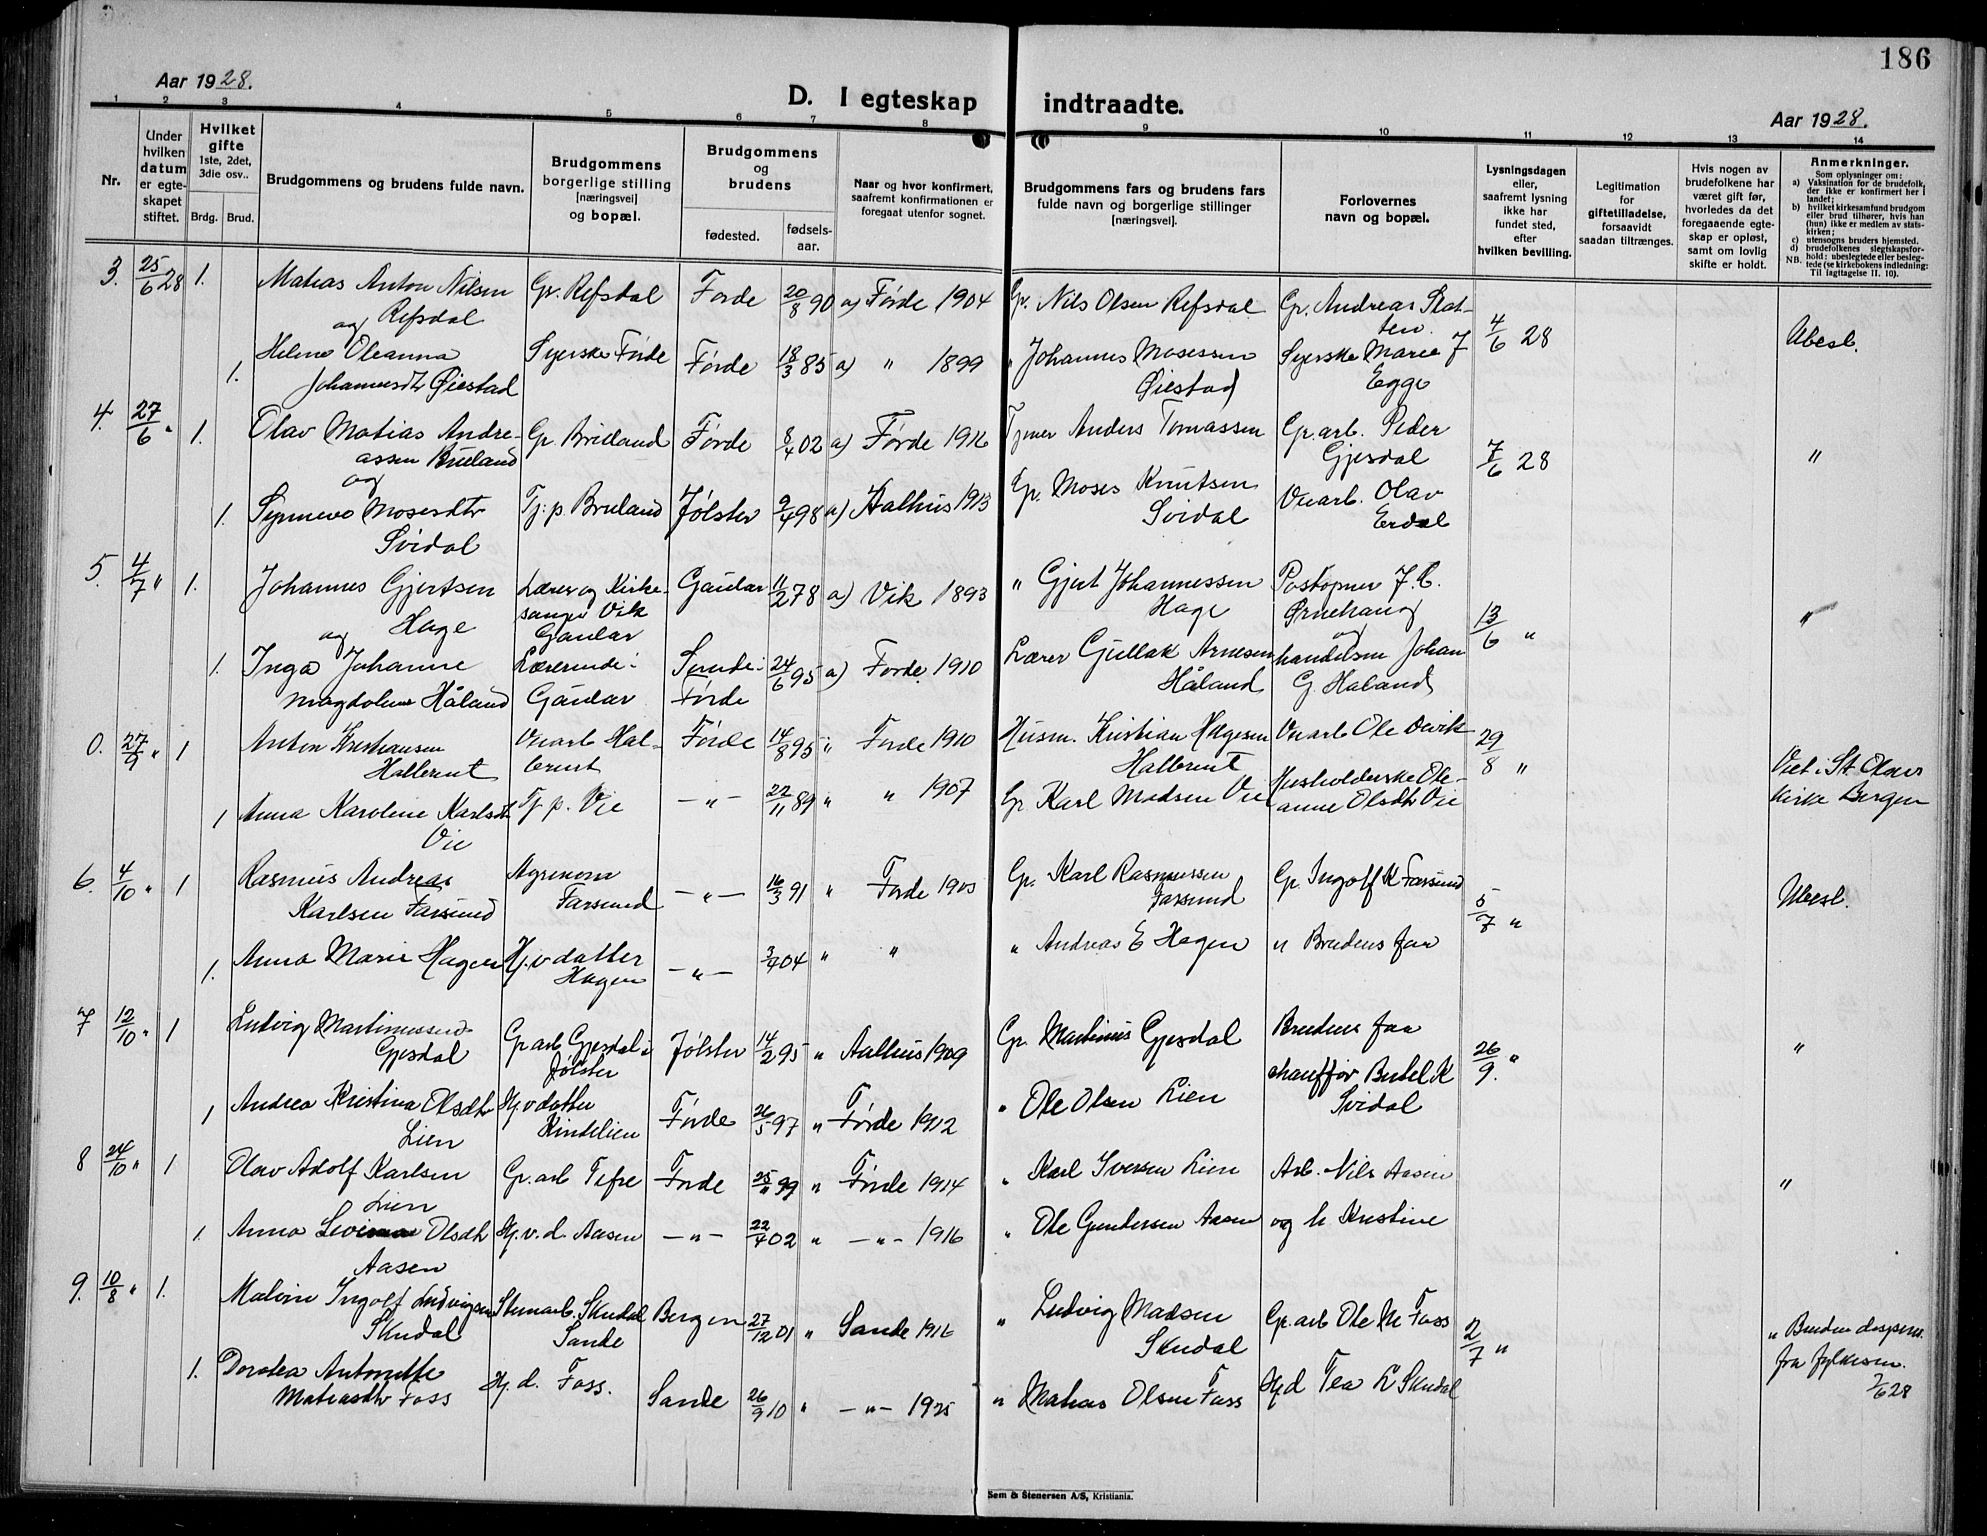 186
Aar 1928.
D. I egteskap indtraadte.
Aar 1928.
1 2 3 4 5 6 7 8 9 10 11 12 13 14
Nr.
Under hvilken datum er egteskapet stiftet.
Hvilket gifte 1ste, 2det, 3die osv..
Brdg. Brud.
Brudgommens og brudens fulde navn.
Brudgommens borgerlige stilling [næringsvei] og bopæl.
Brudgommens og brudens
fødested.
fødselsaar.
Naar og hvor konfirmert, saafremt konfirmationen er foregaat utenfor sognet.
Brudgommens fars og brudens fars fulde navn og borgerlige stillinger [næringsvei].
Forlovernes navn og bopæl.
Lysningsdagen eller, saafremt lysning ikke har fundet sted, efter hvilken bevilling.
Legitimation for giftetilladelse, forsaavidt saadan tiltrænges.
Hvis nogen av brudefolkene har været gift før, hvorledes da det foregaaende egteskap er opløst, samt om lovlig skifte er holdt.
Anmerkninger.
Som oplysninger om:
a) Vaksination for de brudefolk, der ikke er konfirmert her i landet;
b) hvilket kirkesamfund brudgom eller brud tilhører, hvis han (hun) ikke er medlem av statskirken;
c) utensogns bruders hjemsted.
d) brudefolkenes slegtskapsforhold: ubeslegtede eller beslegtede (se kirkebokens indledning: Til iagttagelse II. 10).
NB.
3. 25/6 28 1. Matias Anton Nilsen Refsdal Gr. Refsdal Førde 20/8 90 a) Førde 1904 Gr. Nils Olsen Refsdal Gr. Andreas Slatten. 4/6 28 Ubesl.
og
1. Helene Oleanna Johannesdtr Øiestad Syerske Førde Førde 18/3 85 a) " 1899 " Johannes Mosessen Øiestad Syerske Marie J Egge
4. 27/6 " 1. Olav Matias Andreassen Bruland Gr. Bruland Førde 8/4 02 a) Førde 1916 Anders Tomassen Gr.arb. Peder Gjesdal 7/6 28 "
og
1. Synneve Mosesdtr Svidal Tj. p. Bruland Jølster 9/4 98 a) Aalhus 1913 Gr. Moses Knutsen Svidal Veiarb. Olav Erdal
5. 4/7 " 1. Johannes Gjertsen Hage Lærer og Kirkesanger Vik Gaular Gaular 11/2 78 a) Vik 1893 " Gjert Johannessen Hage Postopner J. C. Ørnehaug 13/6 " "
og
1. Inga Johanne Magdolene Håland Lærerinde i Gaular Sunde i Førde 24/6 95 a) Førde 1910 Lærer Gullak Arnesen Håland og handelsm Johan G. Haland
0. 27/9 " 1 Anton Kristiansen Halbrent Veiarb Halbrent Førde 14/8 95 " Førde 1910 Husm. Kristian Hagesen Halbrent Veiarb Ole Devik 29/8 " Viet i St. Olavs kirke Bergen
1 Anna Karoline Karlsdt. Vie Tj. p. Vie — " — 22/11 89 " " 1907 Gr. Karl Madsen Vie Husholderske Oleanne Olsdtr Vie
6. 4/10 " 1 Rasmus Andreas Karlsen Farsund Agronom Farsund — " — 16/3 91 " Førde 1905 Gr. Karl Rasmussen Farsund Gr. Ingolf K Farsund 5/7 " Ubesl.
1. Anna Marie Hagen Hj.v datter Hagen — " — 3/4 04 " " " Andreas E Hagen " Brudens far
7 12/10 " 1 Ludvig Martinussen Gjesdal Gr arb Gjesdal i Jølster Jølster 14/2 95 " Aalhus 1909 Gr. Martinus Gjesdal Brudens far 26/9. " "
1 Andrea Kristina Olsdtr Lien Hj.v datter Kindelien Førde 26/5 97 " Førde 1912 " Ole Olsen Lien chauffør Bertel K Svidal
8 24/10 " 1 Olav Adolf Karlsen Lien Gr. arb Tefre Førde 25/11 99 " Førde 1914 " Karl Iversen Lien Arb. Nils Aasen "
1. Anna Olsdtr Aasen Hj. v. d. Aasen — " — 22/4 02 " — " — 1916 " Ole Gundersen Aasen og h. Kristine
9. 10/8 " 1. Malvin Ingolf Ludvigsen Skudal Stenarb. Skudal Sande Bergen 27/12 01 " Sande 1916 " Ludvig Madsen Skudal Gr. arb Ole M Foss 2/7 " " Bruden dispens. fra fylkesm. 7/6 28
1. Dorotea Antonette Matiasdtr Foss Hj. d. Foss. Sande 26/9 10 " — " — 1925 " Matias Olsen Foss Hj d Tea L Skudal
Sem & Stenersen A/S, Kristiania.